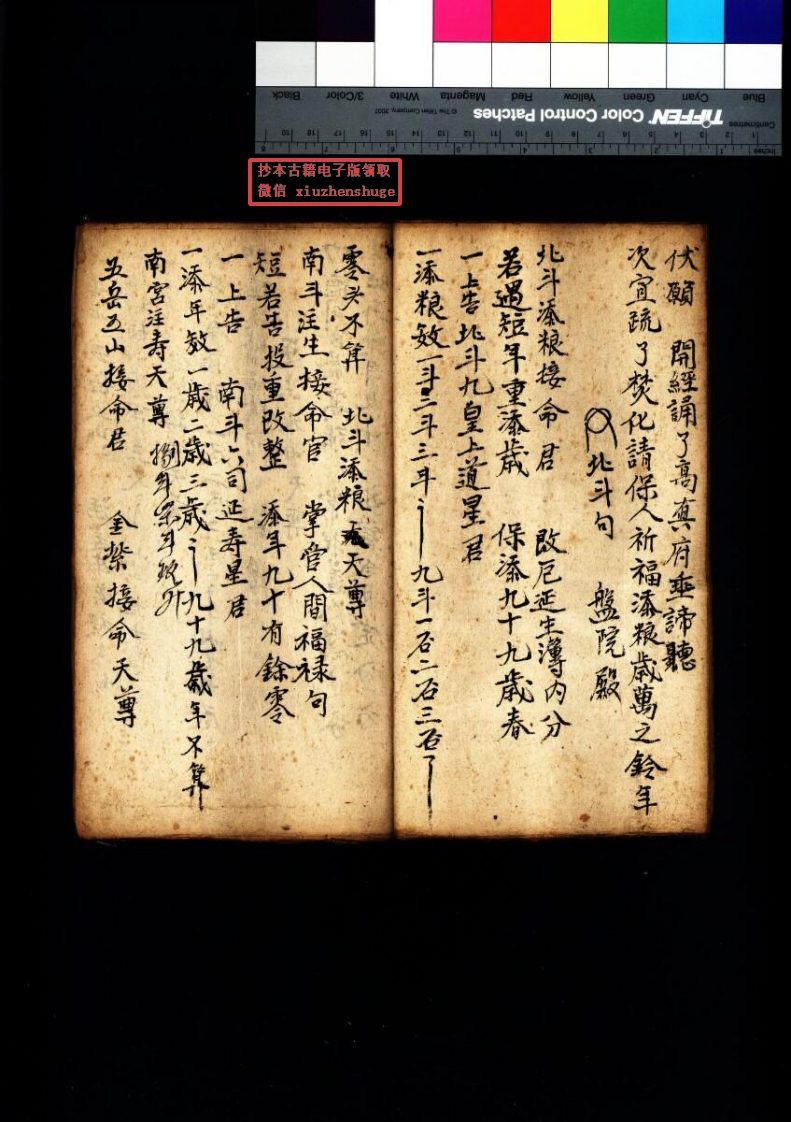 Blue
Cyan
Green
Yellow
Red
Magenta
White
3/Color
Black
TIFFEN Color Control Patches
© The Tiffen Company, 2007
Centimetres
Inches
抄本古籍电子版领取
微信 xiuzhenshuge
伏願 開經誦了高真府垂諦聽
次宣疏了焚化請保人祈福添粮歲萬之鈴年
北斗句 盤院殿
北斗添粮接命君 改厄延生簿内分
若遇短年重添歲 保添九十九歲春
一上告北斗九皇上道星君
一添粮数一斗二斗三斗 九斗一石二石三石了
零头不算 北斗添粮天尊
南斗注生接命官 掌官人間福禄句
短若告投重改整 添年九十有餘零
一上告 南斗六司延寿星君
一添年数一歲二歲三歲 九十九歲年不算
南宮注寿天尊
五岳五山接命君 金紫接命天尊